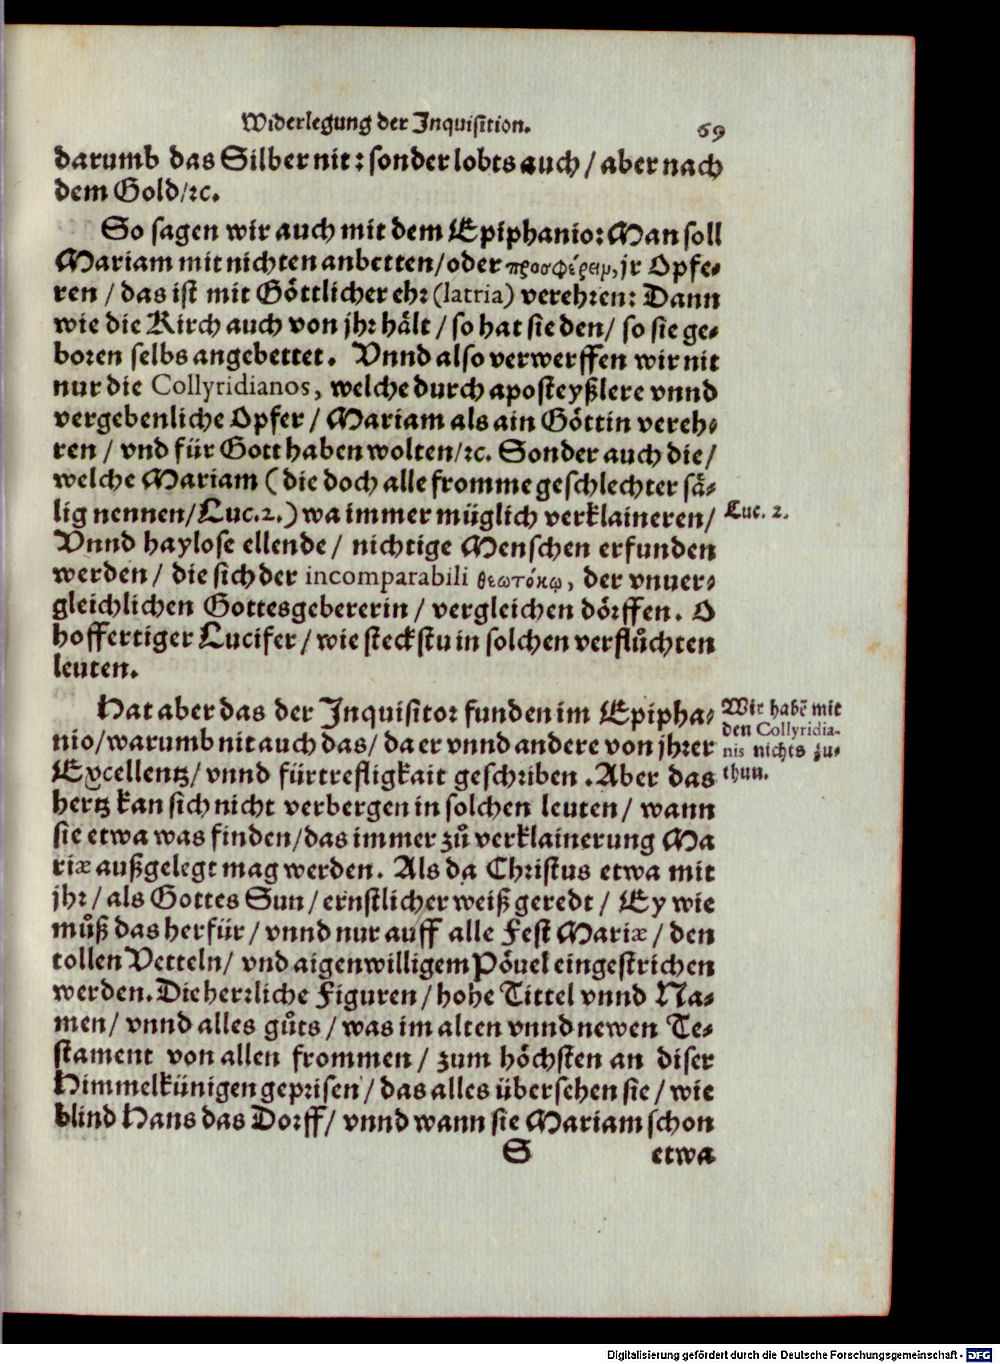 Widerlegung der Inquisition. 69
darumb das Silber nit: sonder lobts auch / aber nach
dem Gold / ꝛc.
So sagen wir auch mit dem Epiphanio: Man soll
Mariam mit nichten anbetten / oder προσφέρειν, jr Opfe-
ren / das ist mit Göttlicher ehr (latria) verehren: Dann
wie die Kirch auch von jhr hält / so hat sie den / so sie ge-
boren selbs angebettet. Vnnd also verwerffen wir nit
nur die Collyridianos, welche durch aposteyßlere vnnd
vergebenliche Opfer / Mariam als ain Göttin vereh-
ren / vnd für Gott haben wolten / ꝛc. Sonder auch die /
welche Mariam ( die doch alle fromme geschlechter sä-
lig nennen / Luc. 2. ) wa immer müglich verklaineren /
Luc. 2.
Vnnd haylose ellende / nichtige Menschen erfunden
werden / die sich der incomparabili θεωτόκῳ, der vnuer-
gleichlichen Gottesgebererin / vergleichen dörffen. O
hoffertiger Lucifer / wie steckstu in solchen verflůchten
leuten.
Hat aber das der Inquisitor funden im Epipha-
nio / warumb nit auch das / da er vnnd andere von jhrer
Excellentz / vnnd fürtrefligkait geschriben . Aber das
hertz kan sich nicht verbergen in solchen leuten / wann
Wir habẽ mit
den Collyridia-
nis nichts zu-
thun.
sie etwa was finden / das immer zů verklainerung Ma
riæ außgelegt mag werden. Als da Christus etwa mit
jhr / als Gottes Sun / ernstlicher weiß geredt / Ey wie
můß das herfür / vnnd nur auff alle Fest Mariæ / den
tollen Vetteln / vnd aigenwilligem Pövel eingestrichen
werden. Die herrliche Figuren / hohe Tittel vnnd Na-
men / vnnd alles gůts / was im alten vnnd newen Te-
stament von allen frommen / zum höchsten an diser
Himmelkünigen geprisen / das alles übersehen sie / wie
blind Hans das Dorff / vnnd wann sie Mariam schon
S etwa
Digitalisierung gefördert durch die Deutsche Forschungsgemeinschaft - DFG